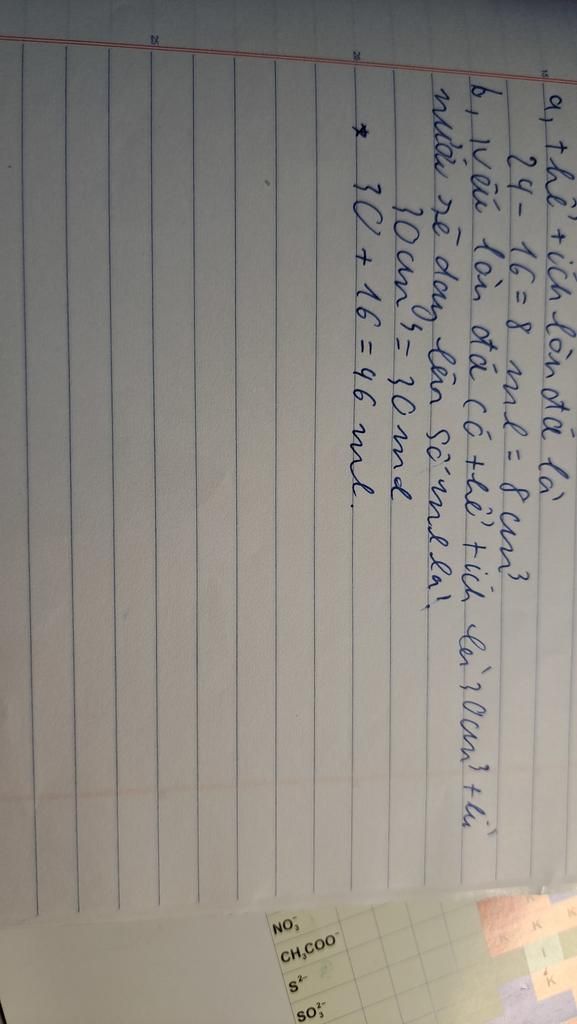 a, thể tích hòn đá là
24 - 16 = 8 ml = 8 cm³
b, Nếu hòn đá có thể tích là 30cm³ thì
nước sẽ dâng lên số ml là:
30cm³ = 30ml
* 30 + 16 = 46 ml.
15
20
25
NO₃⁻
CH₃COO⁻
S²⁻
SO₃²⁻
K
K
K
I
K